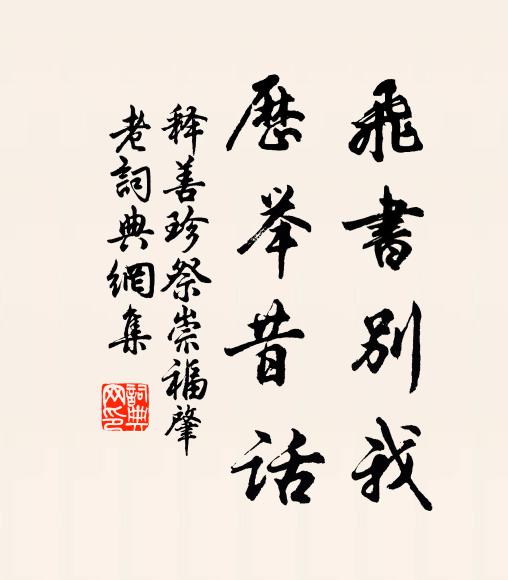 飛書別我
歷举昔话
释善珍祭崇福肇
老詞典網集
詞典
网印